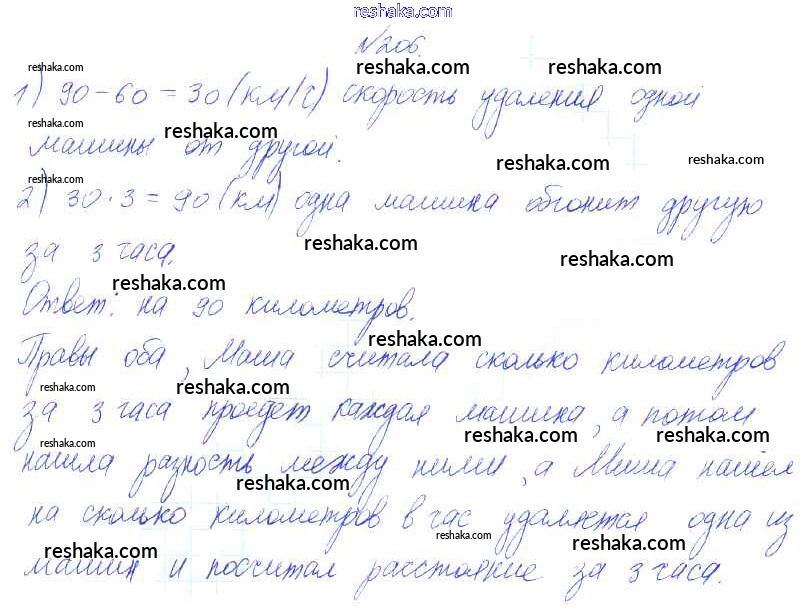 www.reshaka.com
№206.
reshaka.com reshaka.com reshaka.com
1) 90-60=30 (км/ч) скорость удаления одной
reshaka.com reshaka.com
машины от другой.
reshaka.com reshaka.com
reshaka.com
2) 30·3=90 (км) одна машина обгонит другую
reshaka.com
за 3 часа.
reshaka.com reshaka.com
Ответ: на 90 километров.
reshaka.com
Правы оба, Маша считала сколько километров
reshaka.com reshaka.com
за 3 часа проедет каждая машина, а потом
reshaka.com reshaka.com reshaka.com
нашла разность между ними, а Миша нашёл
reshaka.com
на сколько километров в час удаляется одна из
reshaka.com reshaka.com reshaka.com
машин и посчитал расстояние за 3 часа.